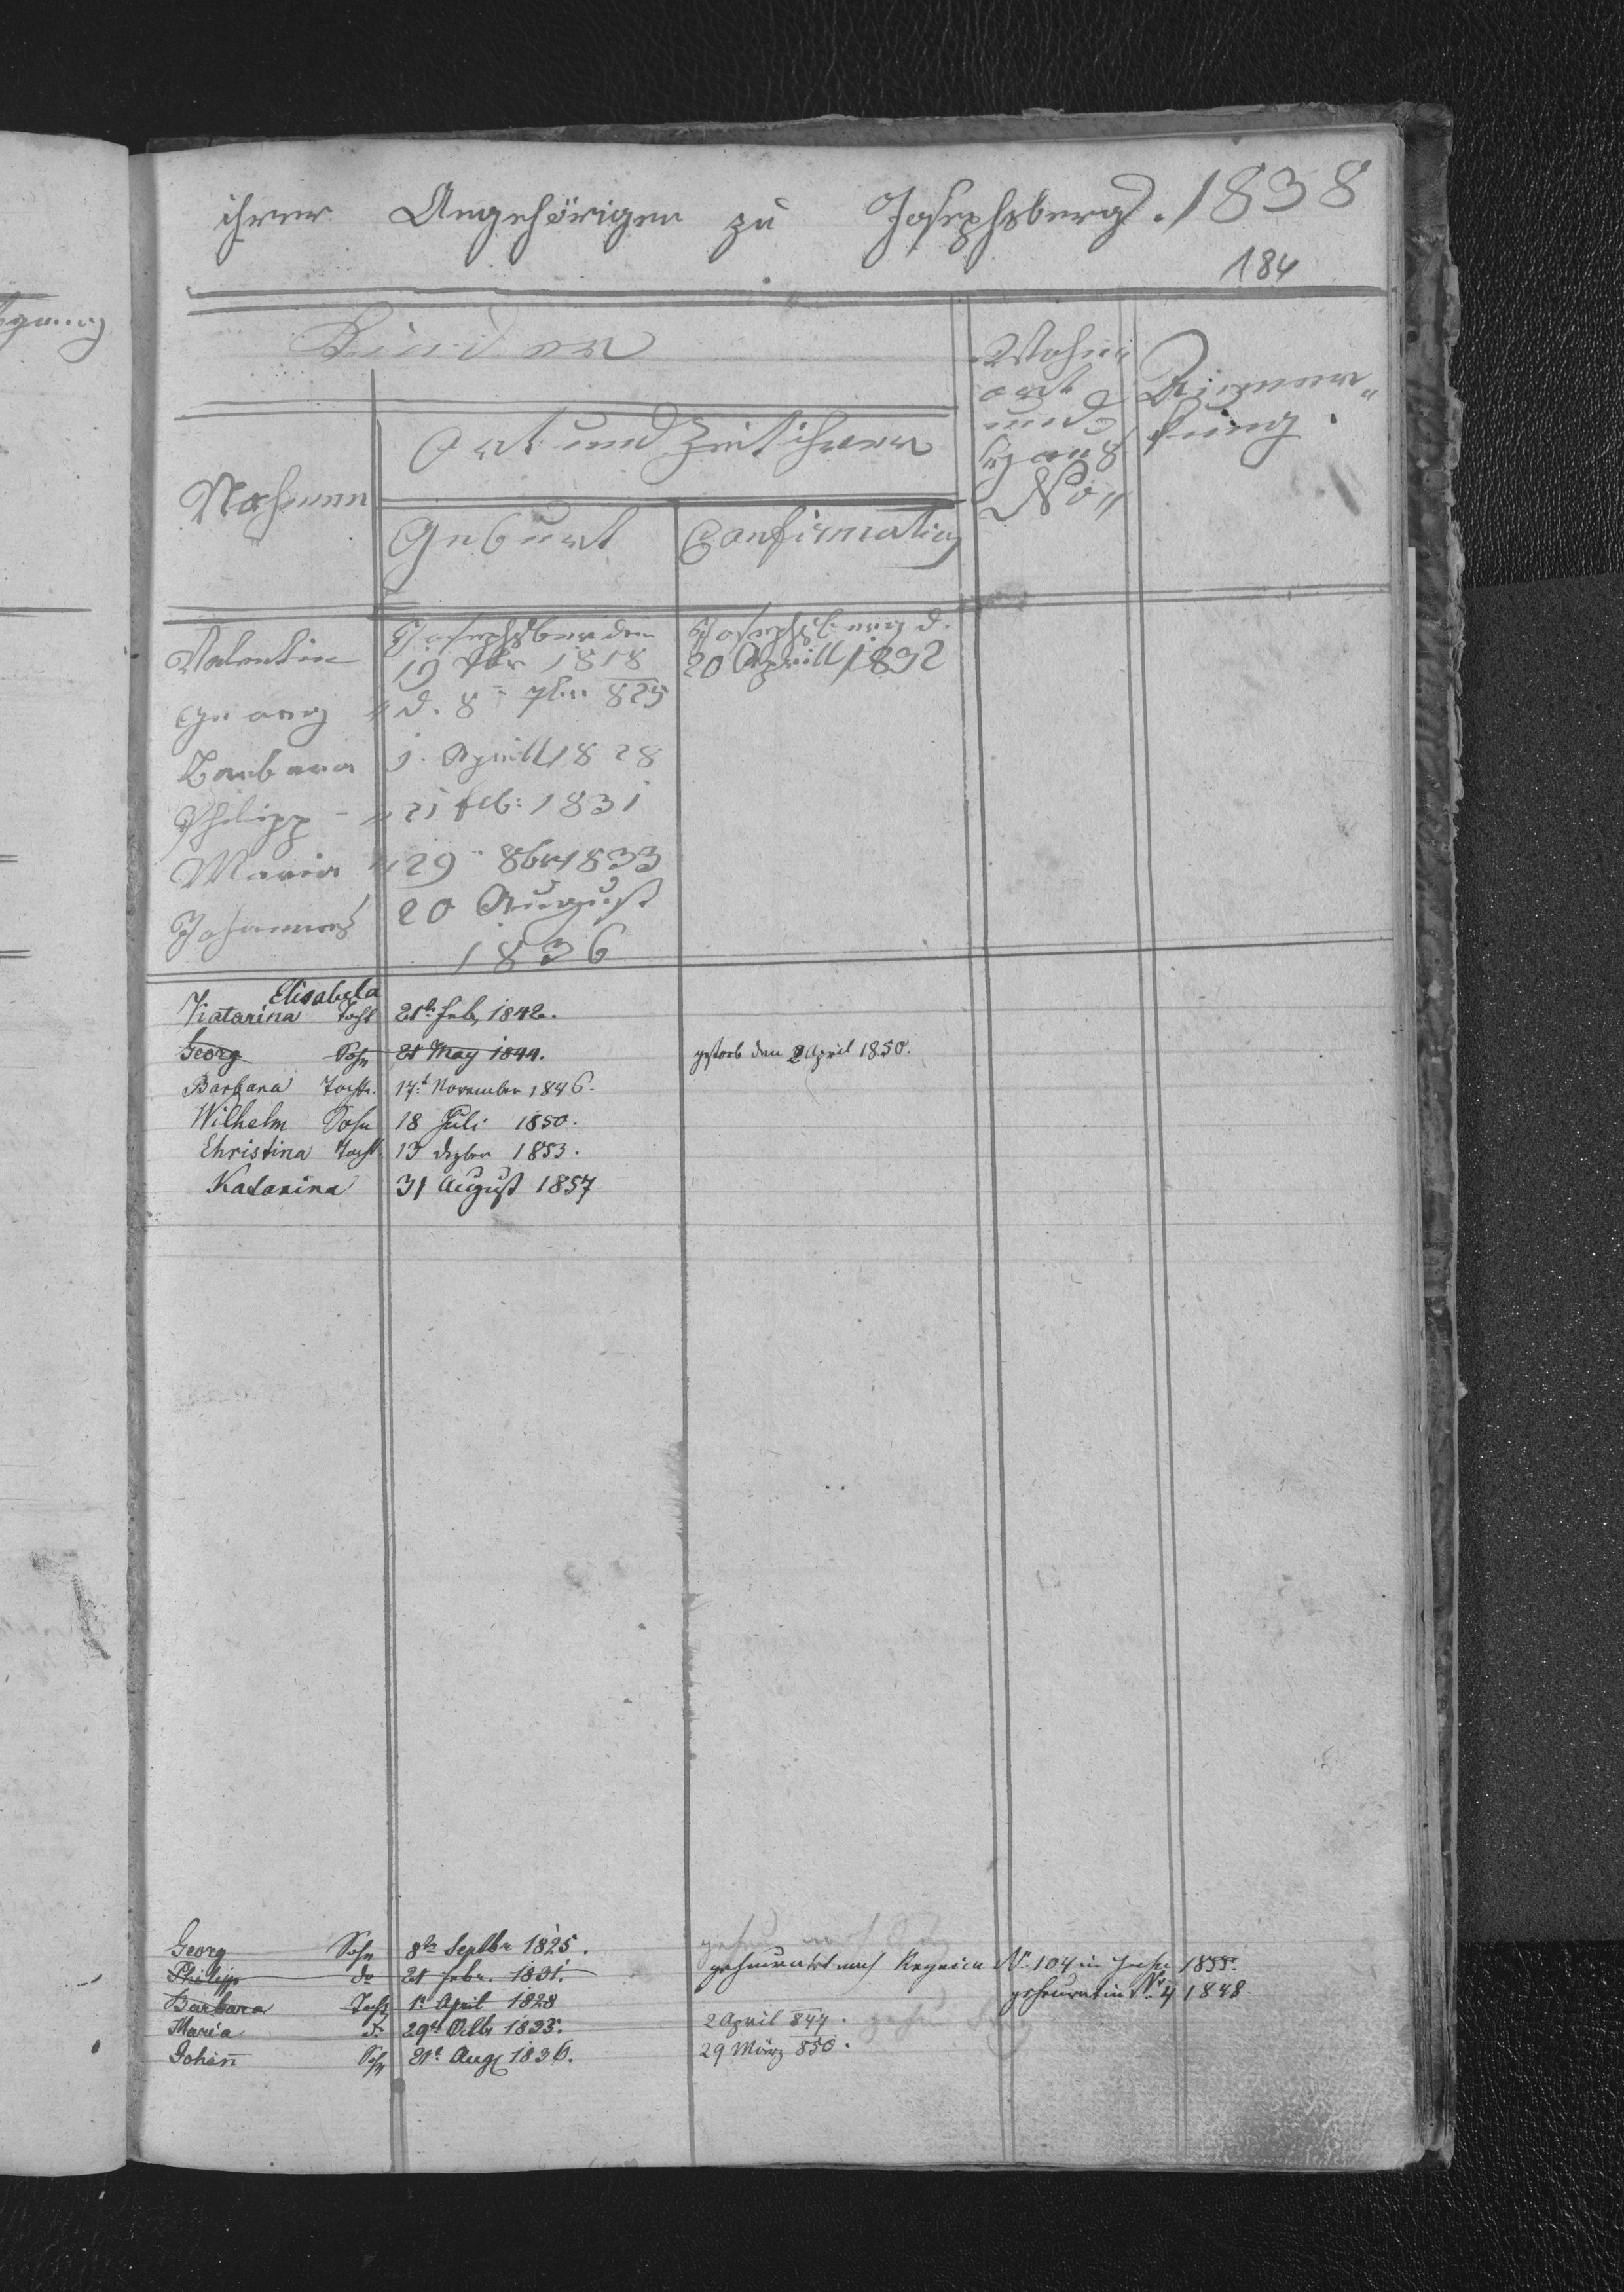 ihrer Angehörigen zu Josephsberg. 1838
184
Kinder
Wohn„
ort
und
Hauß
No„
Anmer„
kung.
Ort und Zeit ihrer
Nahmen
Geburt
Confirmation
Valentin Josephsber den Josephsberg d.
19 1818 20 Aprill 1832
Georg „ d. 8= 7ber 825
Barbara 1. Aprill 1828
Philipp - „ 21 feb: 1831
Maria „ 29 8br 1833
Johannes 20 August
1836
Elisabela
Katarina Tocht 21t Feb, 1842.
Georg Sohn 21 May 1844. gestorb den 2 April 1850.
Barbara Tocht. 17t November 1846.
Wilhelm Sohn 18 Juli 1850.
Christina Tocht 13 dezber 1853.
Katarina 31 August 1857
Georg Sohn 8te Septbr 1825.
Philipp do 21 febr. 1831. geheurathet nach No 104 im Jahr 1855.
Barbara Tocht 1t April 1828 geheurat in No 4 1848.
Maria do 29st Octbr 1833. 2 April 847.
Johan̄ Sohn 21t Aug 1836. 29 März 850.